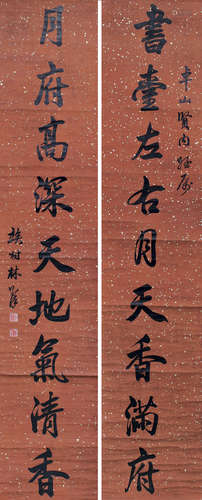 山賢內姪屬
書臺左右月天香滿府
月府高深天地氣清香
村林